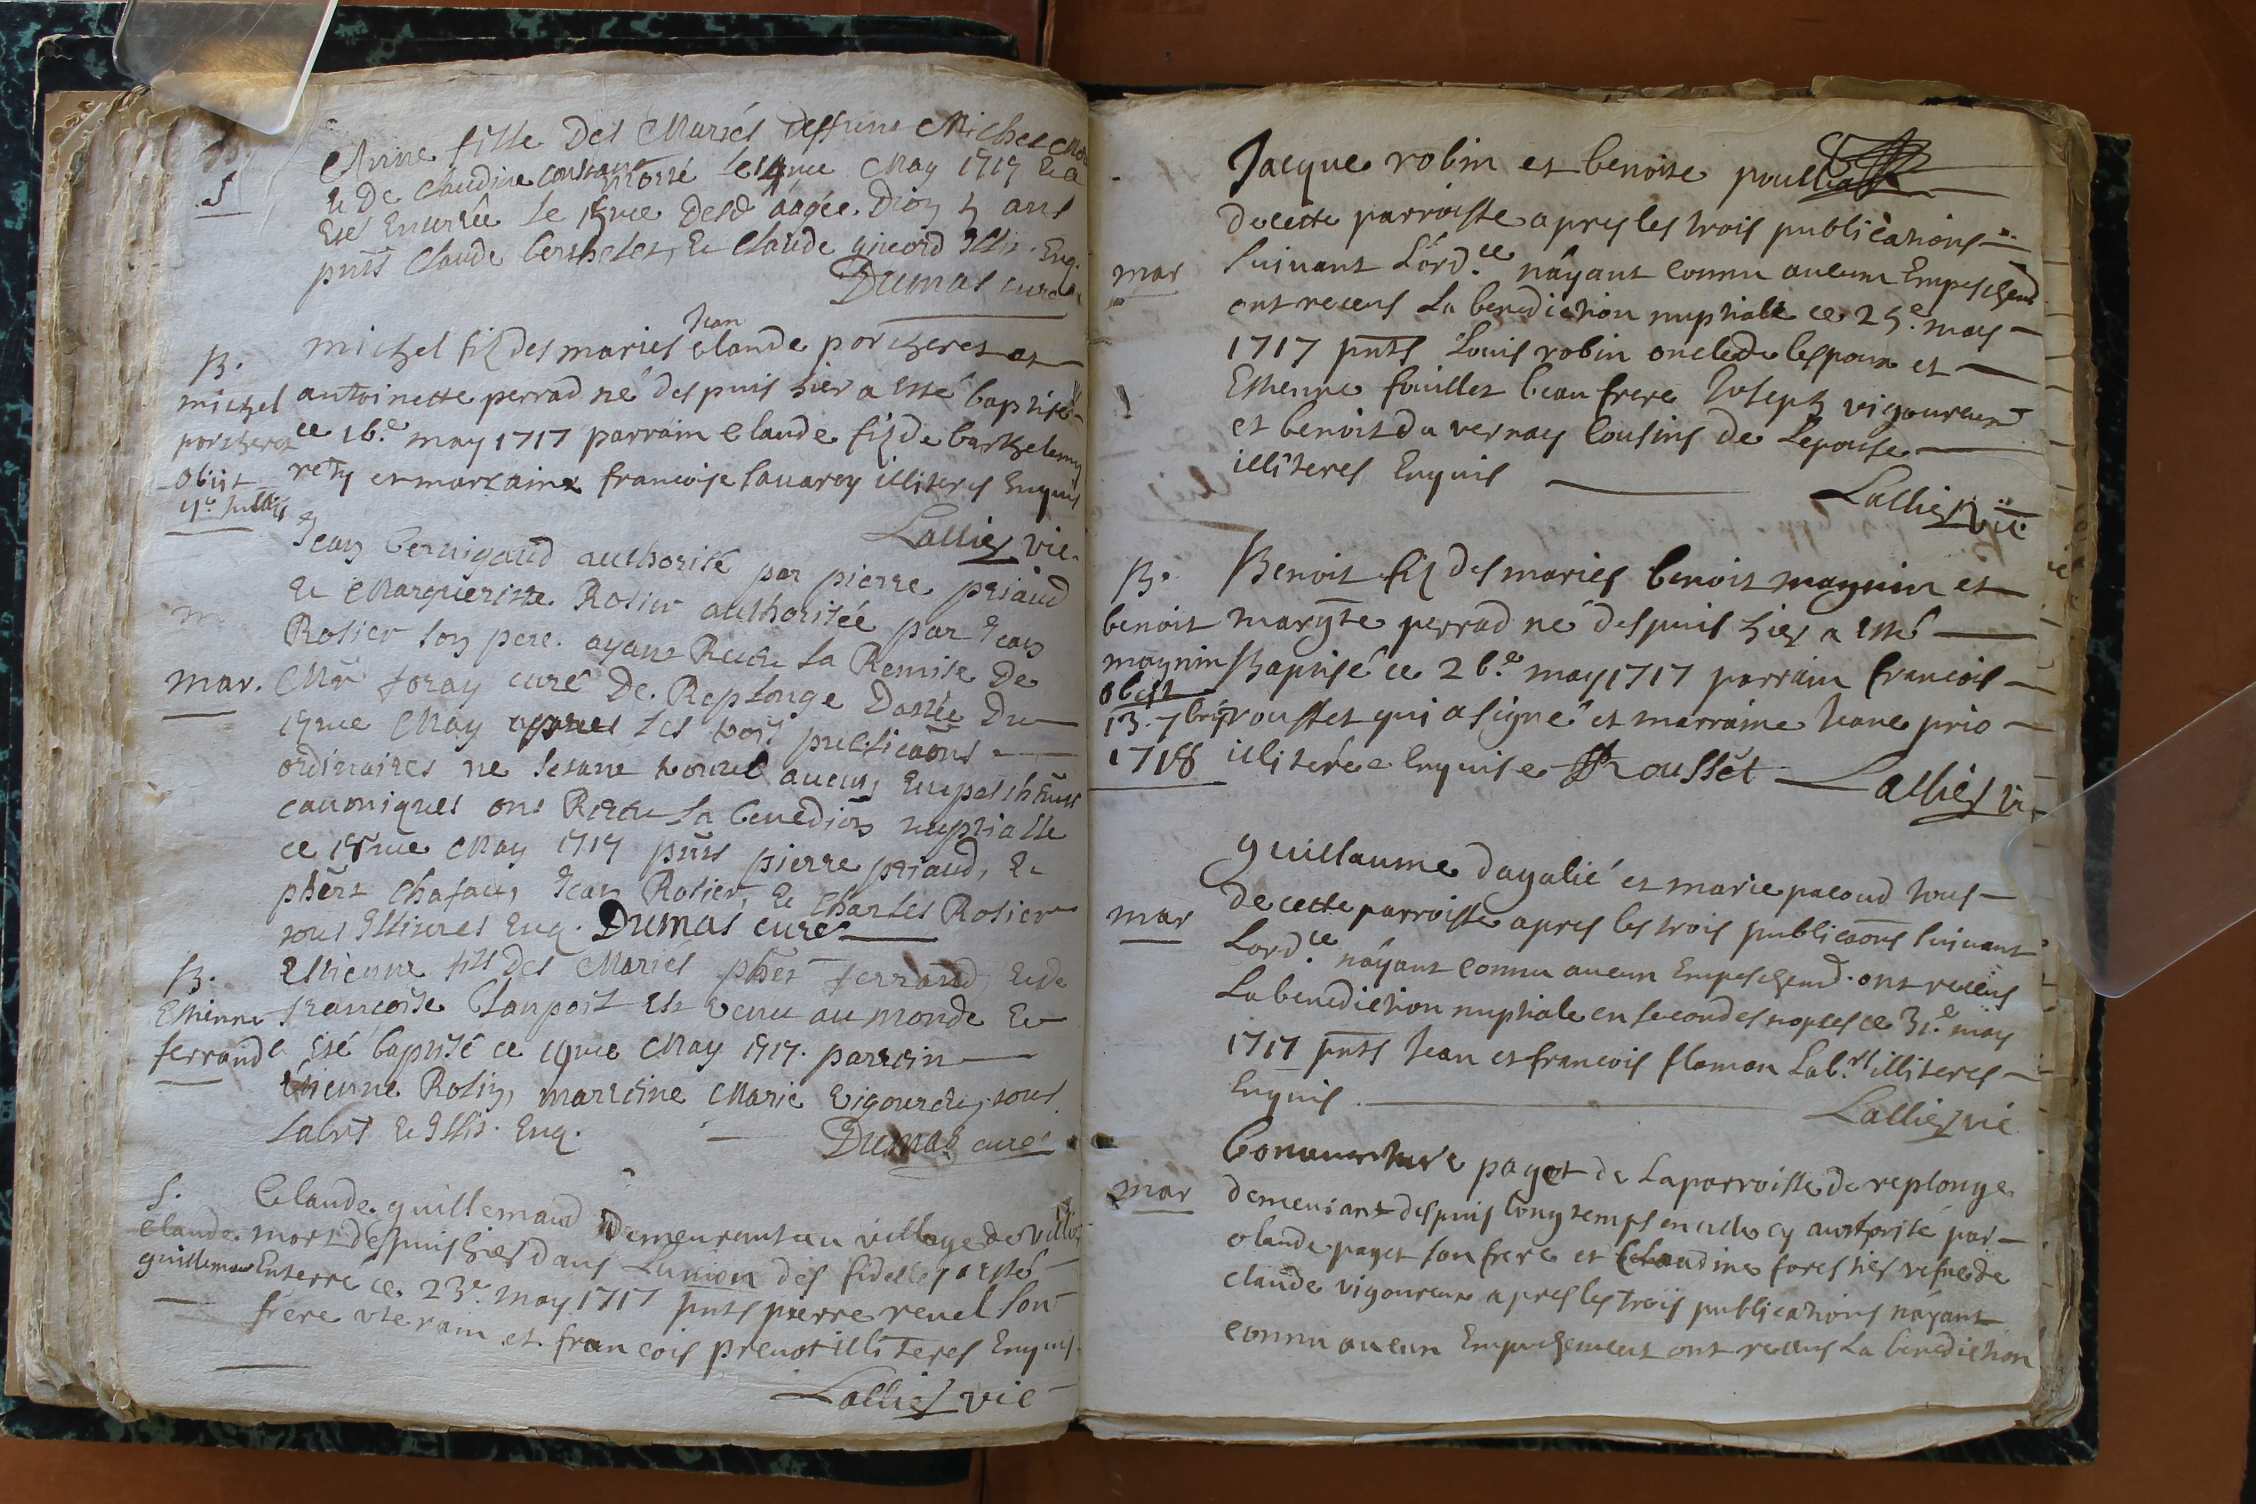 Anne fille Des Mariés deffunt Michel
S
& De Claudine Constant morte le 14me May 1717 & a
Eté Enterrée le 15me Desd aagée. D'ion 5 ans
pnts Claude berthelet, & Claude gicord Illit. Enq.
Dumas curé
Jean
B. michel fiz des mariés Claude porcheret et
michel antoinette perrad né despuis hier a esté baptisé
porcheret ce 16.e may 1717 parrain Claude fiz de barthelemy
obiit rety et marraine francoise savarey illiteres Enquis
Lallier vic.
Jean bernigaud authorisé par pierre priaud
& Margueritte Rosier authorisée par Jean
m
Rosier son pere. ayant Receu la Remise De
mar. Mr foray curé De Replonge Dattée Du
15me May apres les trois publicaons
ordinaires ne sesant trouvé aucun Empeschemt
canoniques ont Receu la benedion nuptialle
ce 18me May 1717 pnts pierre priaud, &
phert Chafaux, Jean Rosier, & Charles Rosier
tous Illitres Enq. Dumas curé
B. Estienne fils des Mariés phert ferrand & de
Etienne francoise Clanpost Est venu au monde &
ferrand a Eté baptisé ce 19me May 1717. parrein
Etienne Rosier, marreine Marie Vigoureux, tous
labrs & Illit. Enq.
Dumas curé
S. Claude guillemaud Demeurant au village de
Claude mort despuis hier dans Lunion des fidelles a esté
guillemau Enterré ce 23e may 1717 pnts pierre revel son
frère uterain et francois prevot illiteres Enquis
Lallier vic
Jacque robin et benoite
de cette parroisse apres les trois publications
mar suivant Lord.ce náyant connu aucun Empeschemt
ont receus La benediction nuptiale ce 25.e may
1717 pnts Louis robin oncle de lespoux et
Estienne fouillet beaufrere Joseph vigoureux
et benoist du vernay Cousins de Lepouse
illiteres Enquis
Lallier vic
B. Benoit fiz des mariés benoit maynin et
benoit margte perrad né despuis hier a esté
maynin Baptisé ce 26.e may 1717 parrain francois
obiit
13. 7bris rousset qui a signé et marraine Jeane prio
1718 illiterée Enquise Rousset Lallier vi
guillaume dagalié et marie pacoud tous
mar de cette parroisse apres les trois publicaons suivant
Lord.ce náyant connu aucun Empeschemt. ont receus
La benediction nuptiale en secondes nopces ce 31.e may
1717 pnts Jean et francois flaman Lab.rs illiteres
Enquis
Lallier vic
bonaventure payet de Laparroisse de replonge
mar demeurant despuis longtemps en celle cy authorisé par
claude payet son frere et Claudine forestier vefue de
claude vigoureux apres les trois publications náyant
connu aucun Empechement ont receus La benediction